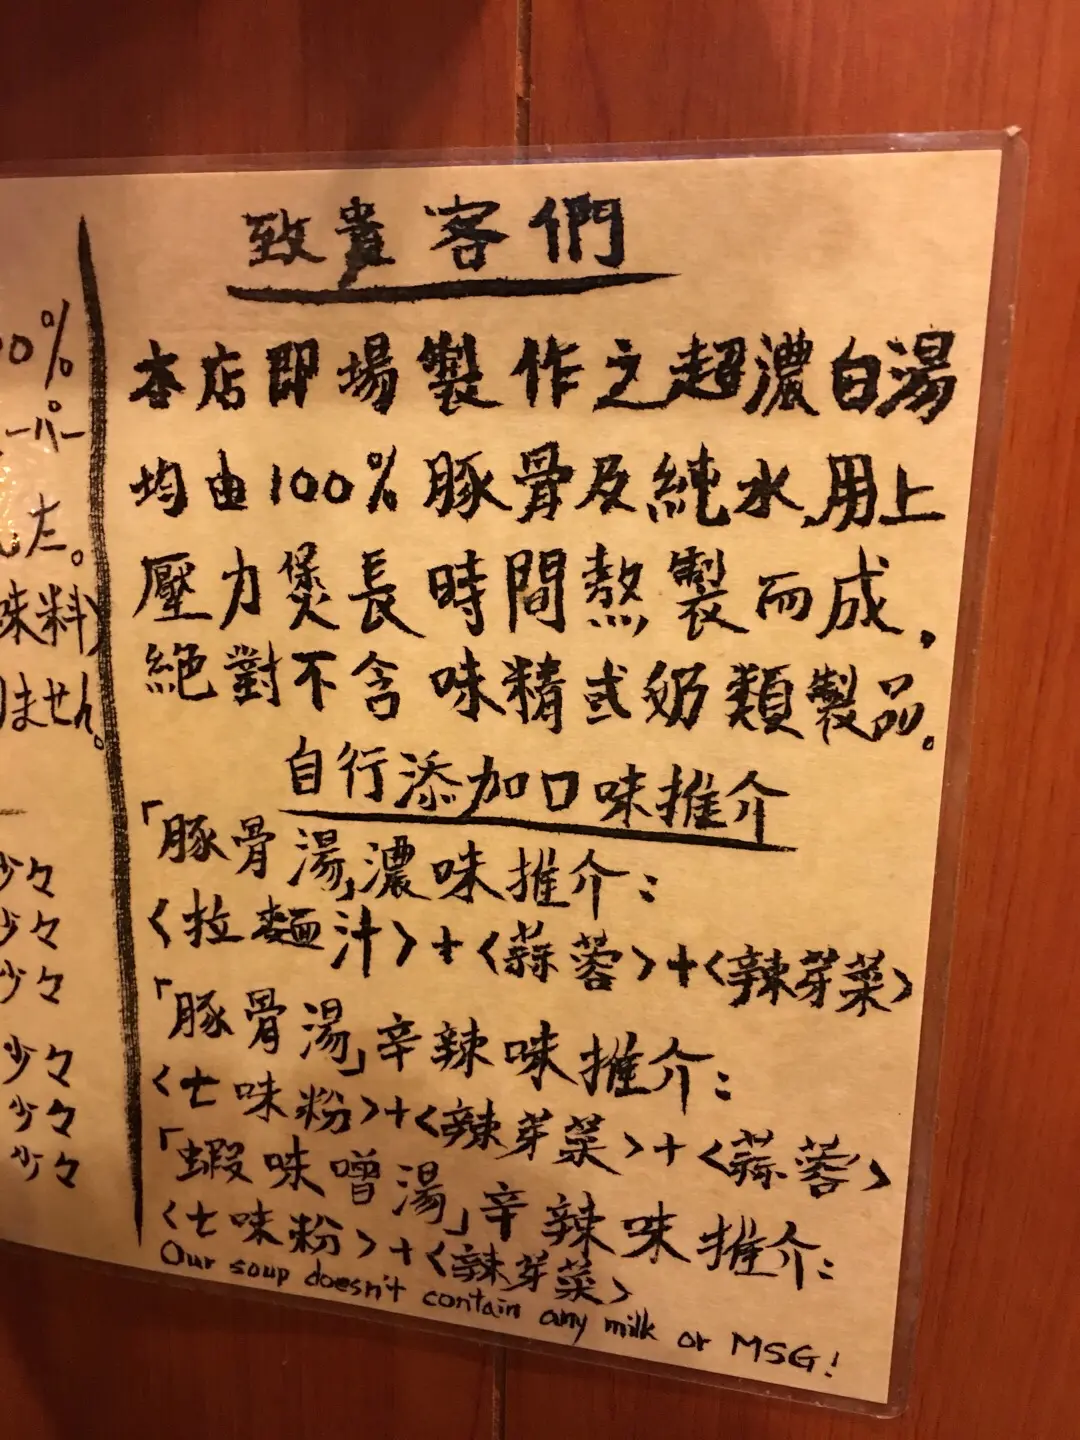 00%
ーパー
した。
味料)
りません。
少々
少々
少々
少々
少々
少々
致貴客們
本店即場製作之超濃白湯
均由100%豚骨及純水,用上
壓力煲長時間熬製而成,
絕對不含味精或奶類製品。
自行添加口味推介
「豚骨湯」濃味推介:
<拉麵汁>+<蒜蓉>+<辣芽菜>
「豚骨湯」辛辣味推介:
<七味粉>+<辣芽菜>+<蒜蓉>
「蝦味噌湯」辛辣味推介:
<七味粉>+<辣芽菜>
Our soup doesn't contain any milk or MSG!